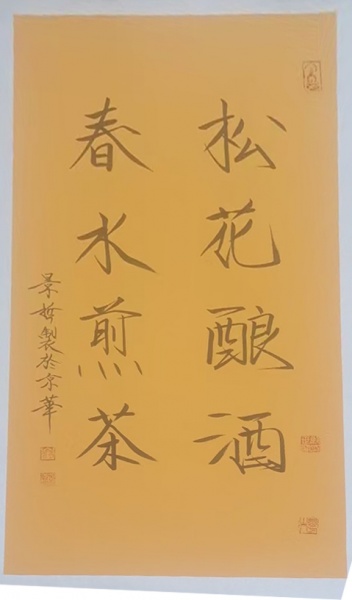 松花酿酒
春水煎茶
景哲製於京華